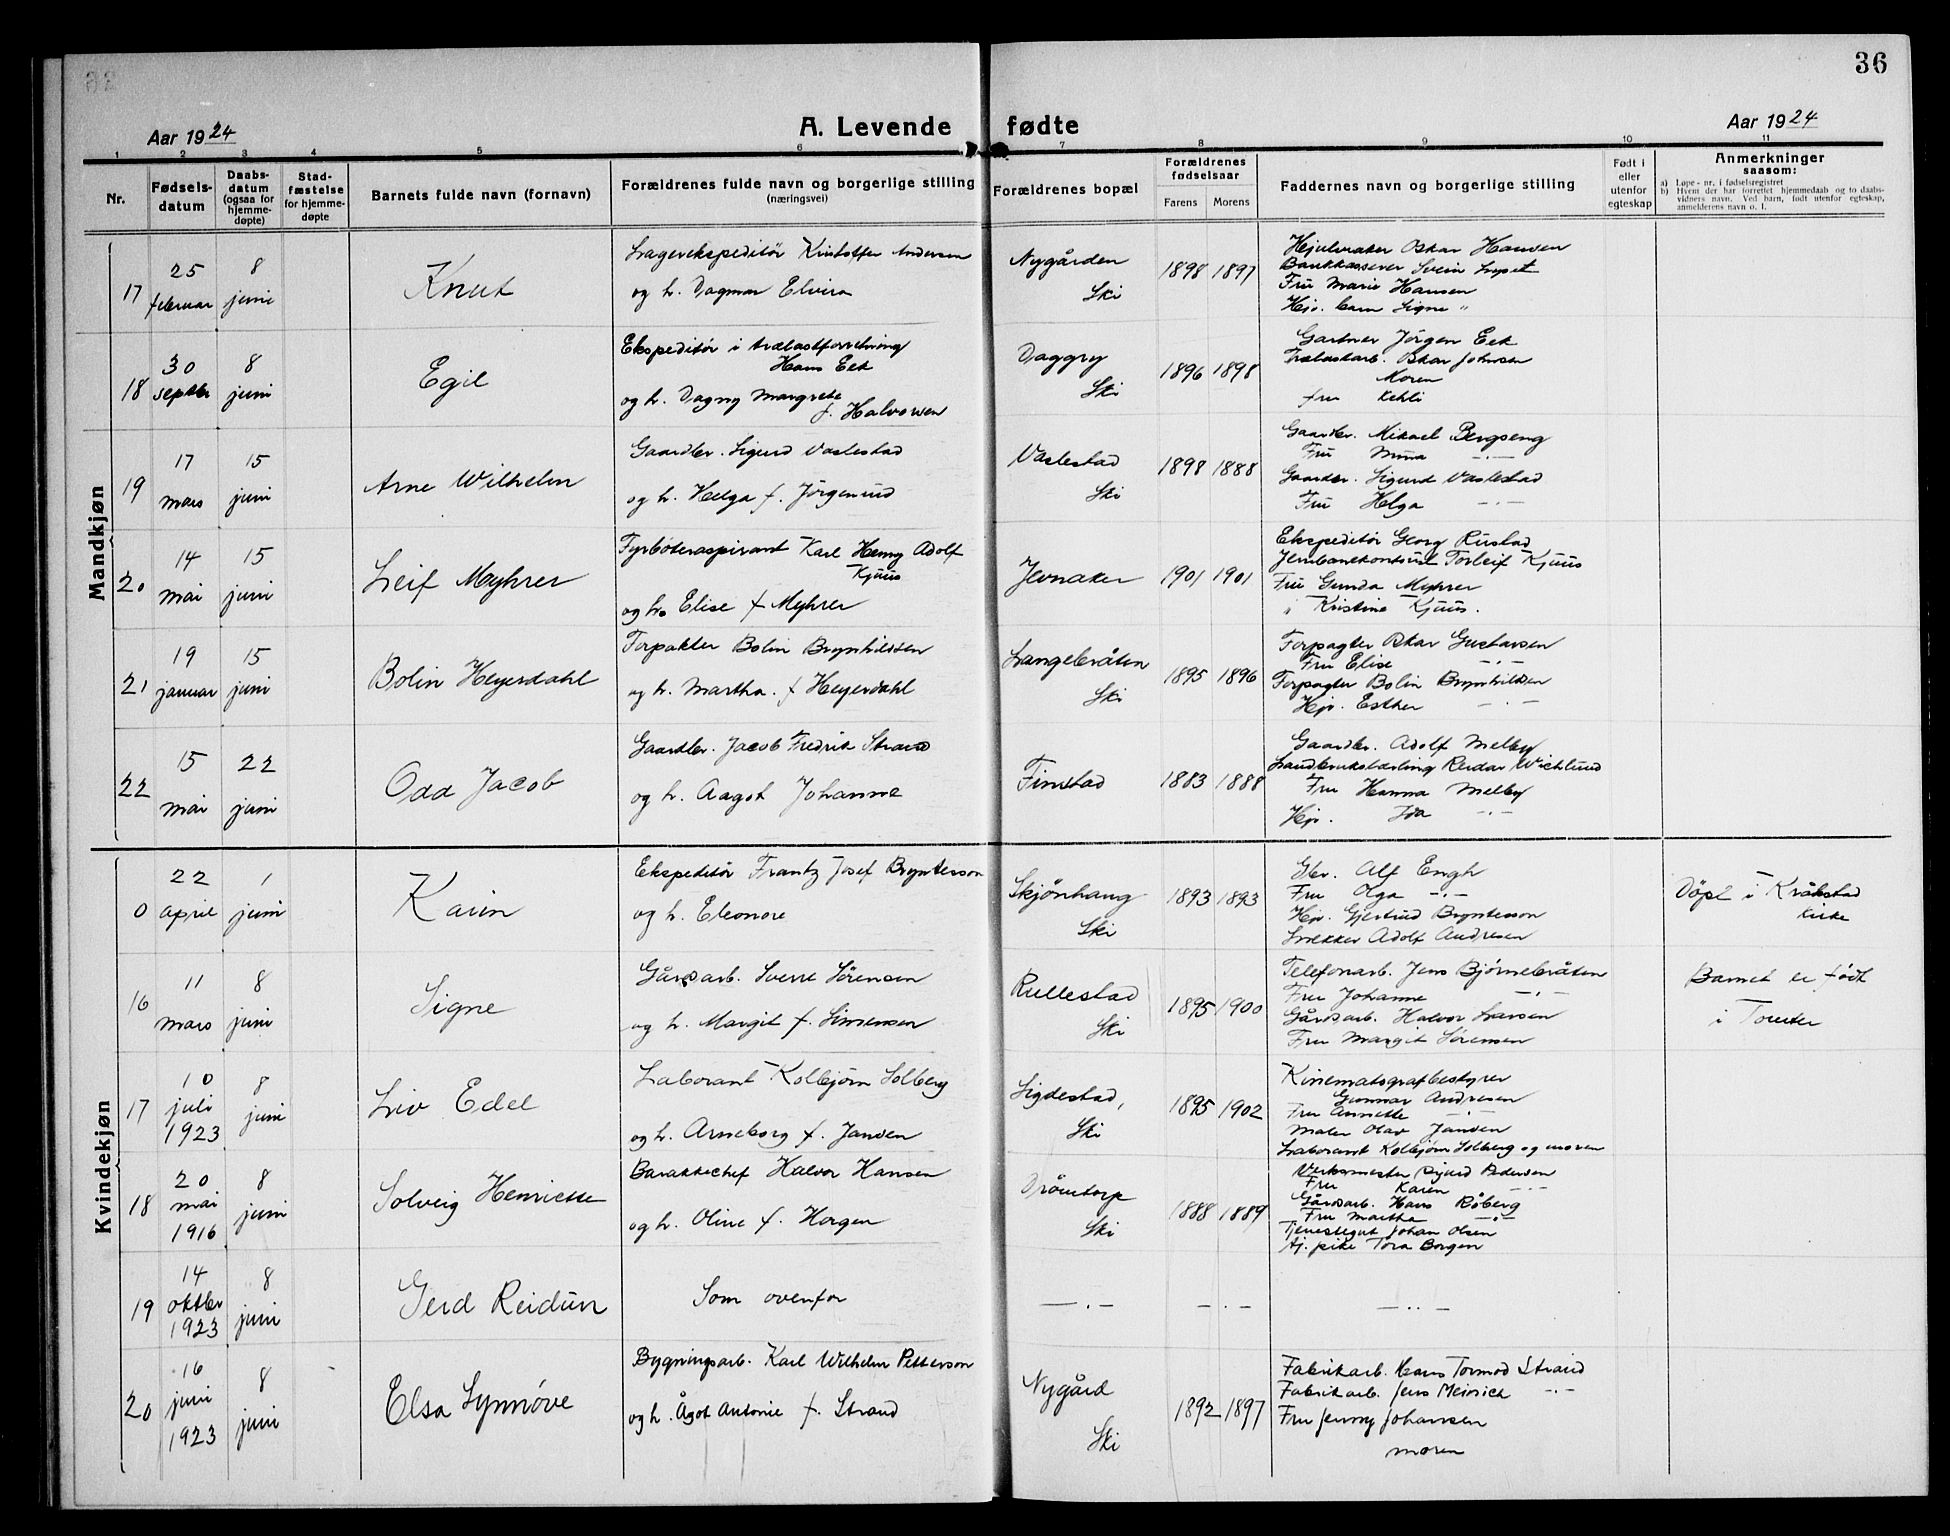 36
Aar 1924
A. Levende fødte
Aar 1924
1 2 3 4 5 6 7 8 9 10 11
Nr.
Fødsels-
datum
Daabs-
datum
(ogsaa for
hjemme-
døpte)
Stad-
fæstelse
for hjemme-
døpte
Barnets fulde navn (fornavn)
Forældrenes fulde navn og borgerlige stilling
(næringsvei)
Forældrenes bopæl
Forældrenes
fødselsaar
Farens
Morens
Faddernes navn og borgerlige stilling
Født i
eller
utenfor
egteskap
Anmerkninger
saasom:
a) Løpe-nr. i fødselsregistret
b) Hvem der har forrettet hjemmedaab og to daabs-
vidners navn. Ved barn, født utenfor egteskap,
anmelderens navn o. l.
Mandkjøn
17
25
februar
8
juni
Knut
Lagerekspeditör Kristoffer Andersen
og h. Dagmar Elvira
Nygården
Ski
1898 1897
Hjulmaker Oskar Hansen
Bankkasserer Svein
Fru Marie Hansen
Signe "
18
30
septbr
8
juni
Egil
Ekspeditör i trælastforretning
Hans Eek
og h. Dagny Margrete
f. Halvorsen
Daggry
Ski
1896 1898
Gartner Jörgen Eek
Trælastarb. Oskar Johnsen
Moren
fru Kehli
19
17
mars
15
juni
Arne Wilhelm
Gaardbr. Sigurd Vaslestad
og h. Helga f. Jörgensen
Vaslestad
Ski
1898 1888
Gaardbr. Mikael Bergseng
Fru Mina -.-
Gaardbr. Sigurd Vaslestad
Fru Helga -.-
20
14
mai
15
juni
Leif Myhrer
Fyrböteraspirant Karl Henry Adolf
Kjuus
og h. Elise f Myhrer
Jevnaker
1901 1901
Ekspeditör Georg Rustad
Jernbanekontorist Torleif Kjuus
Fru Gunda Myhrer
" Kristine Kjuus.
21
19
januar
15
juni
Bolin Heyerdahl
Forpakter Bolin Brynhildsen
og h. Martha. f Heyerdahl
Langebråten
Ski
1895 1896
Forpagter Oskar Gustavsen
Fru Elise -.-
Forpagter Bolin Brynhildsen
Hjv. Esther -.-
22
15
mai
22
juni
Odd Jacob
Gaardbr. Jacob Fredrik Strand
og h. Aagot Johanne
Finstad
1883 1888
Gaardbr. Adolf Melby
Landbrukslærling Reidar Wichlund
Fru Hanna Melby
Hjv. Ida -.-
Kvindekjøn
0
22
april
1
juni
Karin
Ekspeditör Frantz Josef Bryntesson
og h. Eleonore
Skjönhaug
Ski
1893 1893
Gbr. Alf Engh
Fru Olga -.-
Hjv. Gjertrud Bryntesson
Snekker Adolf Andresen
Döpt i Kråkstad
kirke
16
11
mars
8
juni
Signe
Gårdsarb. Sverre Sörensen
og h. Margit f. Simensen
Rullestad
Ski
1895 1900
Telefonarb. Jens Bjørnebråten
Fru Johanne -.-
Gårdsarb. Halvor Larsen
Fru Margit Sörensen
Barnet er födt
i Tomter
17
10
juli
1923
8
juni
Liv Edel
Laborant Kolbjörn Solberg
og h. Arneborg f. Jansen
Sigdestad,
Ski
1895 1902
Kinematografbestyrer
Gunnar Andresen
Fru Annette -.-
Maler Olav Jansen
Laborant Kolbjörn Solberg og moren
18
20
mai
1916
8
juni
Solveig Henriette
Barakkechef Halvor Hansen
og h. Oline f. Horgen
Drömtorp
Ski
1888 1889
Verksmester Sigurd Pedersen
Fru Karen -.-
Gårdsarb. Hans Röberg
Fru Martha -.-
Tjenestegut Johan Olsen
Tj. pike Tora Borgen
19
14
oktbr
1923
8
juni
Gerd Reidun
Som ovenfor
—.— —.— —..—
20
16
juni
1923
8
juni
Elsa Synnöve
Bygningsarb. Karl Wilhelm Petterson
og h. Ågot Antonie f. Strand
Nygård
Ski
1892 1897
Fabrikarb. Hans Tormod Strand
Fabrikarb. Jens Meinich -.-
Fru Jenny Johansen
moren